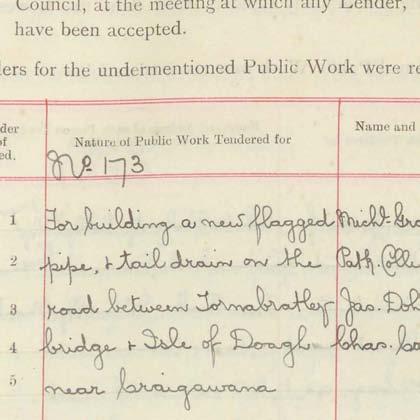 Council, at the meeting at which any Lender,
have been accepted.
ders for the undermentioned Public Work were re
der
of
ed.
Nature of Public Work Tendered for
Name and
No 173
1 For building a new flagged Michl. Gra
2 pipe, & tail drain on the Patk. Colle
3 road between Tornabratley Jas. Doh
4 bridge & Isle of Doagh Chas. Co
5 near Craigawana